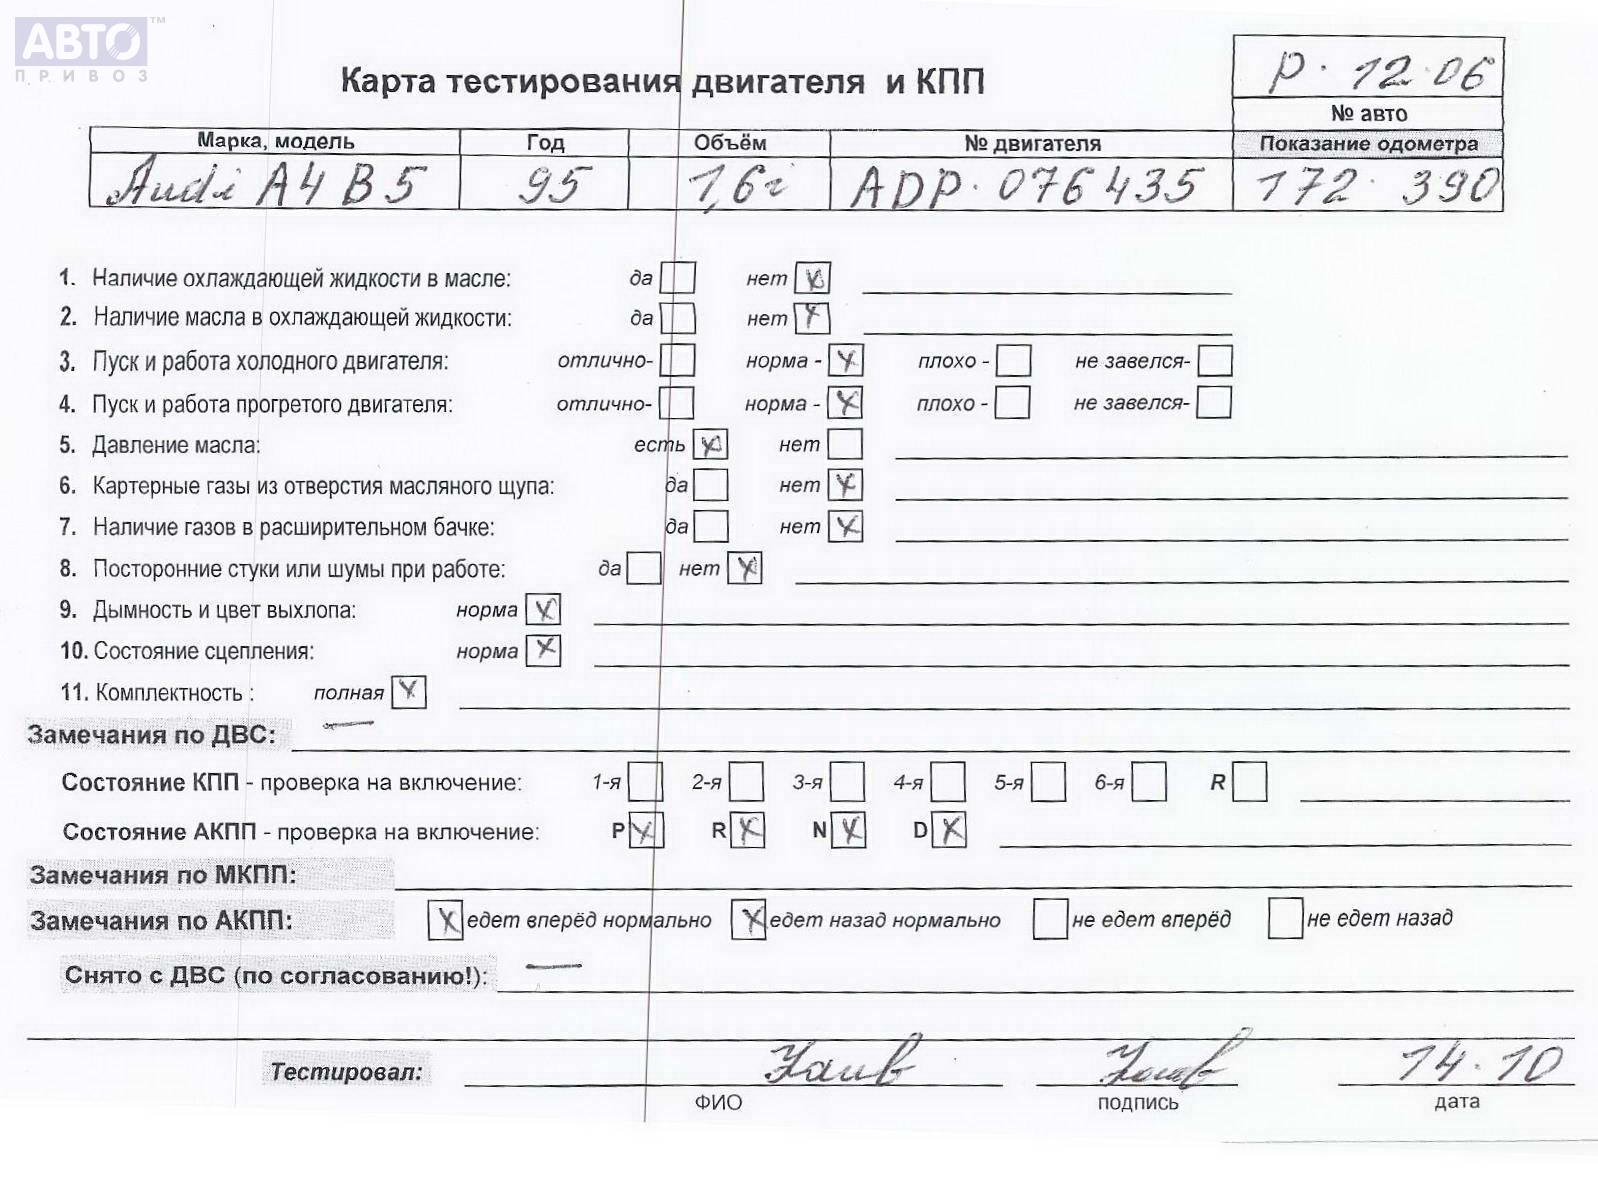 АВТО™
ПРИВОЗ
Р· 12·06
Карта тестирования двигателя и КПП
№ авто
Марка, модель Год Объём № двигателя Показание одометра
Audi A4 B5 95 1,6i ADP·076435 172·390
1. Наличие охлаждающей жидкости в масле: да нет X
2. Наличие масла в охлаждающей жидкости: да нет X
3. Пуск и работа холодного двигателя: отлично- норма - X плохо - не завелся-
4. Пуск и работа прогретого двигателя: отлично- норма - X плохо - не завелся-
5. Давление масла: есть X нет
6. Картерные газы из отверстия масляного щупа: да нет X
7. Наличие газов в расширительном бачке: да нет X
8. Посторонние стуки или шумы при работе: да нет X
9. Дымность и цвет выхлопа: норма X
10. Состояние сцепления: норма X
11. Комплектность : полная X
Замечания по ДВС: —
Состояние КПП - проверка на включение: 1-я 2-я 3-я 4-я 5-я 6-я R
Состояние АКПП - проверка на включение: P X R X N X D X
Замечания по МКПП:
Замечания по АКПП: X едет вперёд нормально X едет назад нормально не едет вперёд не едет назад
Снято с ДВС (по согласованию!): —
Тестировал: 14·10
ФИО подпись дата